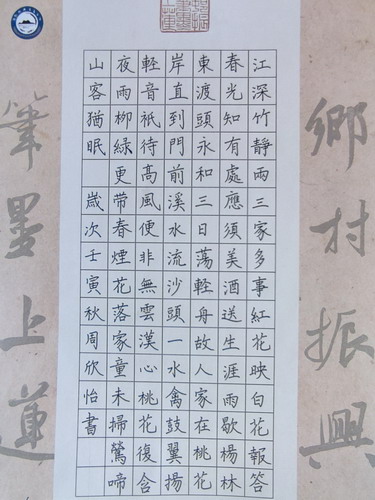 鄉村振興
江深竹靜兩三家多事紅花映白花報答
春光知有處應須美酒送生涯雨歇楊林
東渡頭永和三日蕩輕舟故人家在桃花
岸直到門前溪水流沙頭一水禽鼓翼揚
輕音祇待高風便非無雲漢心桃花復含
夜雨柳綠更帶春煙花落家童未掃鶯啼
山客猶眠 歲次壬寅秋周欣怡書
筆墨上蓮